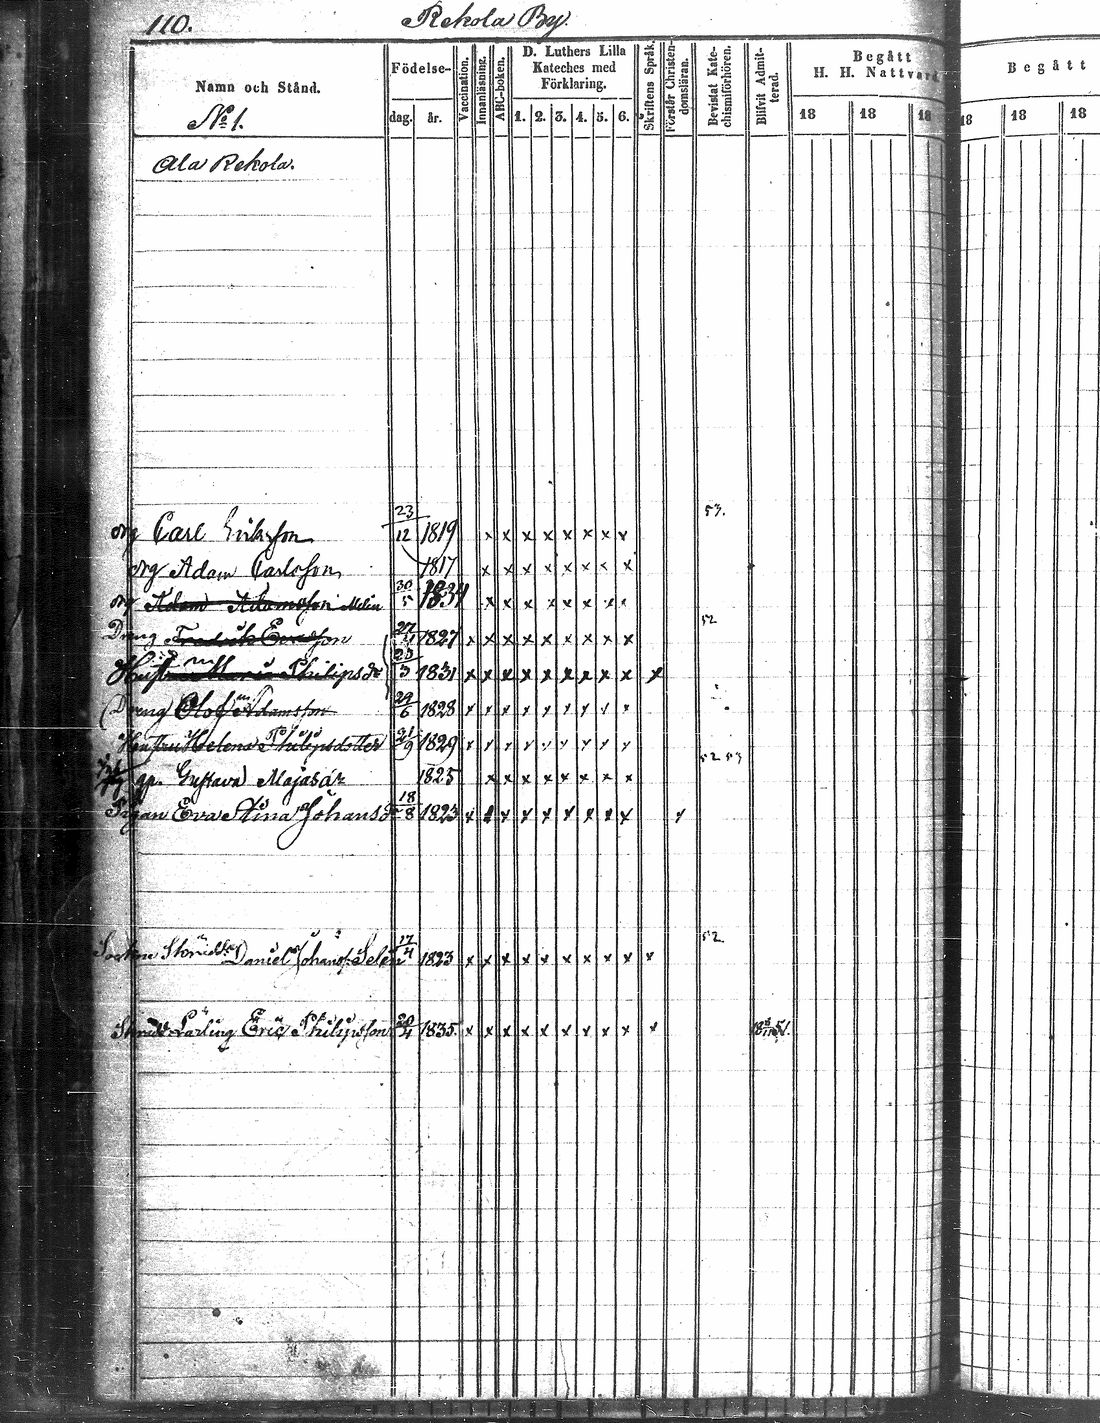 110. Rekola By.
Namn och Stånd.
Födelse-
dag. år.
Vaccination.
Innanläsning.
ABC-boken.
D. Luthers Lilla
Kateches med
Förklaring.
1. 2. 3. 4. 5. 6.
Skriftens Språk.
Förstår Christen-
domsläran.
Bevistat Kate-
chismiförhören.
Blifvit Admit-
terad.
Begått
H. H. Nattvard
18 18 18
Begått
18 18 18
No 1.
Ala Rekola.
Carl Eriksson 23/12 1819 x x x x x x x x 53.
Adam Carlsson 1817 x x x x x x x x
Adam Adamsson 30/5 1834 x x x x x x x x
Dreng Fredrik Ericsson 27 1827 x x x x x x x x x 52
Hustru Maria Philipsdr 23/3 1831 x x x x x x x x x x
Dreng Olof Adamsson 29/6 1828 x x x x x x x x x
Hustru Helena Philipsdotter 21/9 1829 x x x x x x x x x
Gustava Majasdr 1825 x x x x x x x x 52 53
Pigan Eva Stina Johansdr 18/8 1823 x x x x x x x x x x
Socken Daniel Johanss. Selén 17/4 1823 x x x x x x x x x x 52
Lärling Eric Philipsson 20/4 1835. x x x x x x x x x x